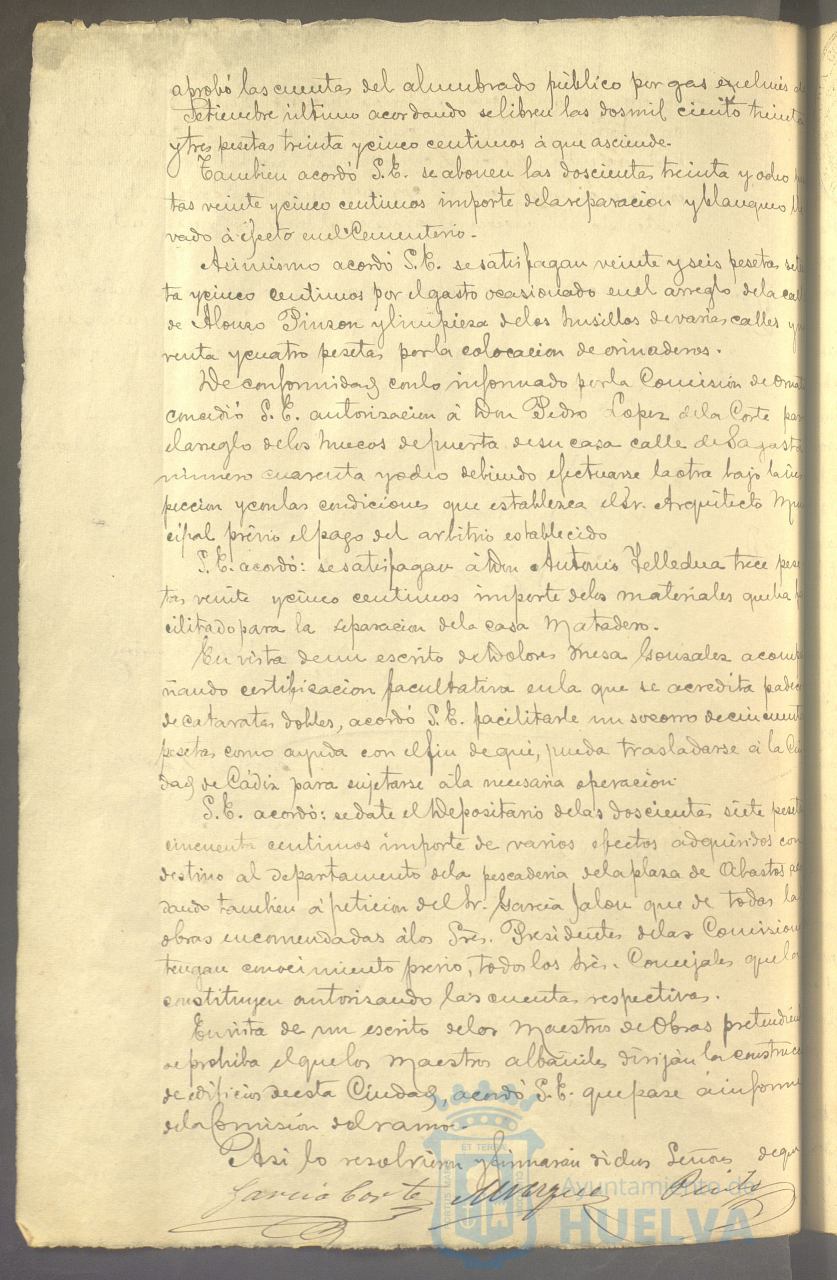 aprobó las cuentas del alumbrado público por gas en el mes de
Setiembre último acordando se libren las dosmil ciento treinta
y tres pesetas treinta y cinco centimos á que asciende.
Tambien acordó S.E. se abonen las doscientas treinta y ocho
tas veinte y cinco centimos importe de la reparacion y blanqueo lle
vado á efecto en el Cementerio.
Asimismo acordó S.E. se satisfagan veinte y seis pesetas seten
ta y cinco centimos por el gasto ocasionado en el arreglo de la calle
de Alonso Pinzon y limpieza de los husillos de varias calles y no
venta y cuatro pesetas por la colocacion de orinaderos.
De conformidad con lo informado por la Comisión de Ornato
concedió S.E. autorizacion á Don Pedro Lopez de la Corte para
el arreglo de los huecos de puerta de su casa calle de Sagasta
número cuarenta y ocho debiendo efectuarse la obra bajo la ins
peccion y con las condiciones que establezca el Sr. Arquitecto Muni
cipal prévio el pago del arbitrio establecido
S.E. acordó: se satisfagan á Don Antonio Telledua trece pese
tas veinte y cinco centimos importe de los materiales que ha fa
cilitado para la reparacion de la casa Matadero.
En vista de un escrito de Dolores Mesa Gonzalez acompa
ñando certificacion facultativa en la que se acredita padece
de cataratas dobles, acordó S.E. facilitarle un socorro de cincuenta
pesetas como ayuda con el fin de que, pueda trasladarse á la Ciu
dad de Cádiz para sujetarse á la necesaria operacion.
S.E. acordó: se date el Depositario de las doscientas siete pesetas
cincuenta centimos importe de varios efectos adquiridos con
destino al departamento de la pescaderia de la plaza de Abastos acor
dando tambien á peticion del Sr. Garcia Jalon que de todas las
obras encomendadas á los Sres. Presidentes de las Comisiones
tengan conocimiento previo, todos los Sres. Concejales que las
constituyen autorizando las cuentas respectivas.
En vista de un escrito de los Maestros de Obras pretendiendo
se prohiba el que los Maestros albañiles dirijan la construccion
de edificios de esta Ciudad, acordó S.E. que pase á informe
de la Comisión del ramo.
Asi lo resolvieron y firmarán dichos Señores de que
Garcia Corte Marquez
Ayuntamiento de
HUELVA